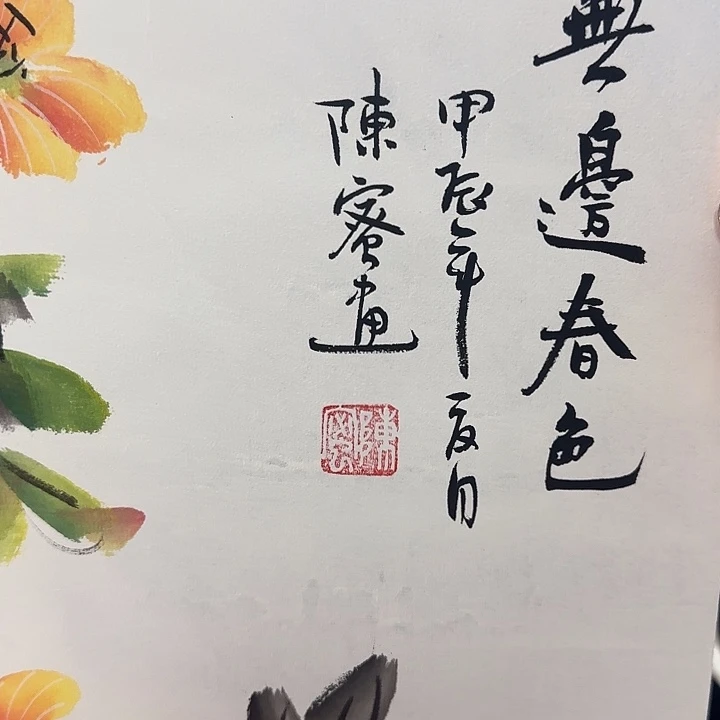 無邊春色
甲辰年夏月
陳蜜畫
陳蜜